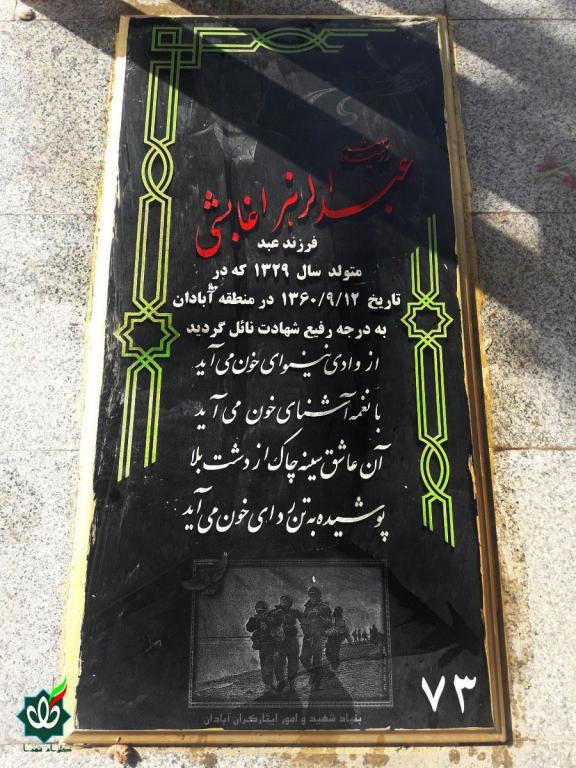 رزمنده شهید
عبدالزهرا غابشی
فرزند عبد
متولد سال ۱۳۲۹ که در
تاریخ ۱۳۶۰/۹/۱۲ در منطقه آبادان
به درجه رفیع شهادت نائل گردید
از وادی نینوای خون می آید
با نغمه آشنای خون می آید
آن عاشق سینه چاک از دشت بلا
پوشیده به تن ردای خون می آید
بنیاد شهید و امور ایثارگران آبادان
۷۳